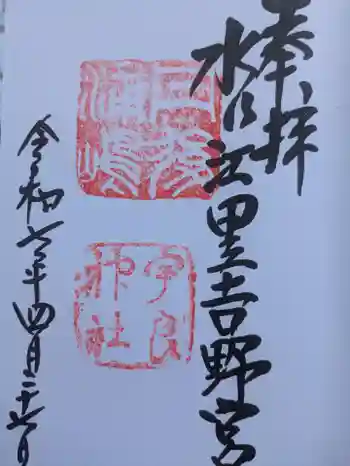 奉拝
水乃江里吉野宮
宇良
神社
令和七年四月二十六日